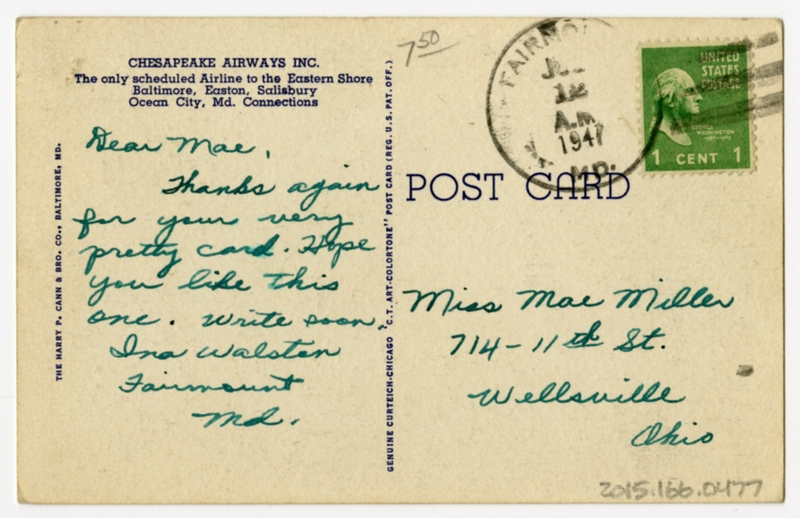 CHESAPEAKE AIRWAYS INC.
The only scheduled Airline to the Eastern Shore
Baltimore, Easton, Salisbury
Ocean City, Md. Connections
Dear Mae,
Thanks again
for your very
pretty card. Hope
you like this
one. Write soon.
Ina Walston
Fairmount
Md.
THE HARRY P. CANN & BRO. CO., BALTIMORE, MD.
GENUINE CURTEICH-CHICAGO "C.T. ART-COLORTONE" POST CARD (REG. U.S. PAT. OFF.)
7 50
FAIRMO
12
A.M
1947
MD.
UNITED
STATES
POSTAGE
GEORGE
WASHINGTON
1 CENT 1
POST CARD
Miss Mae Miller
714-11th St.
Wellsville
Ohio
2015.166.0477